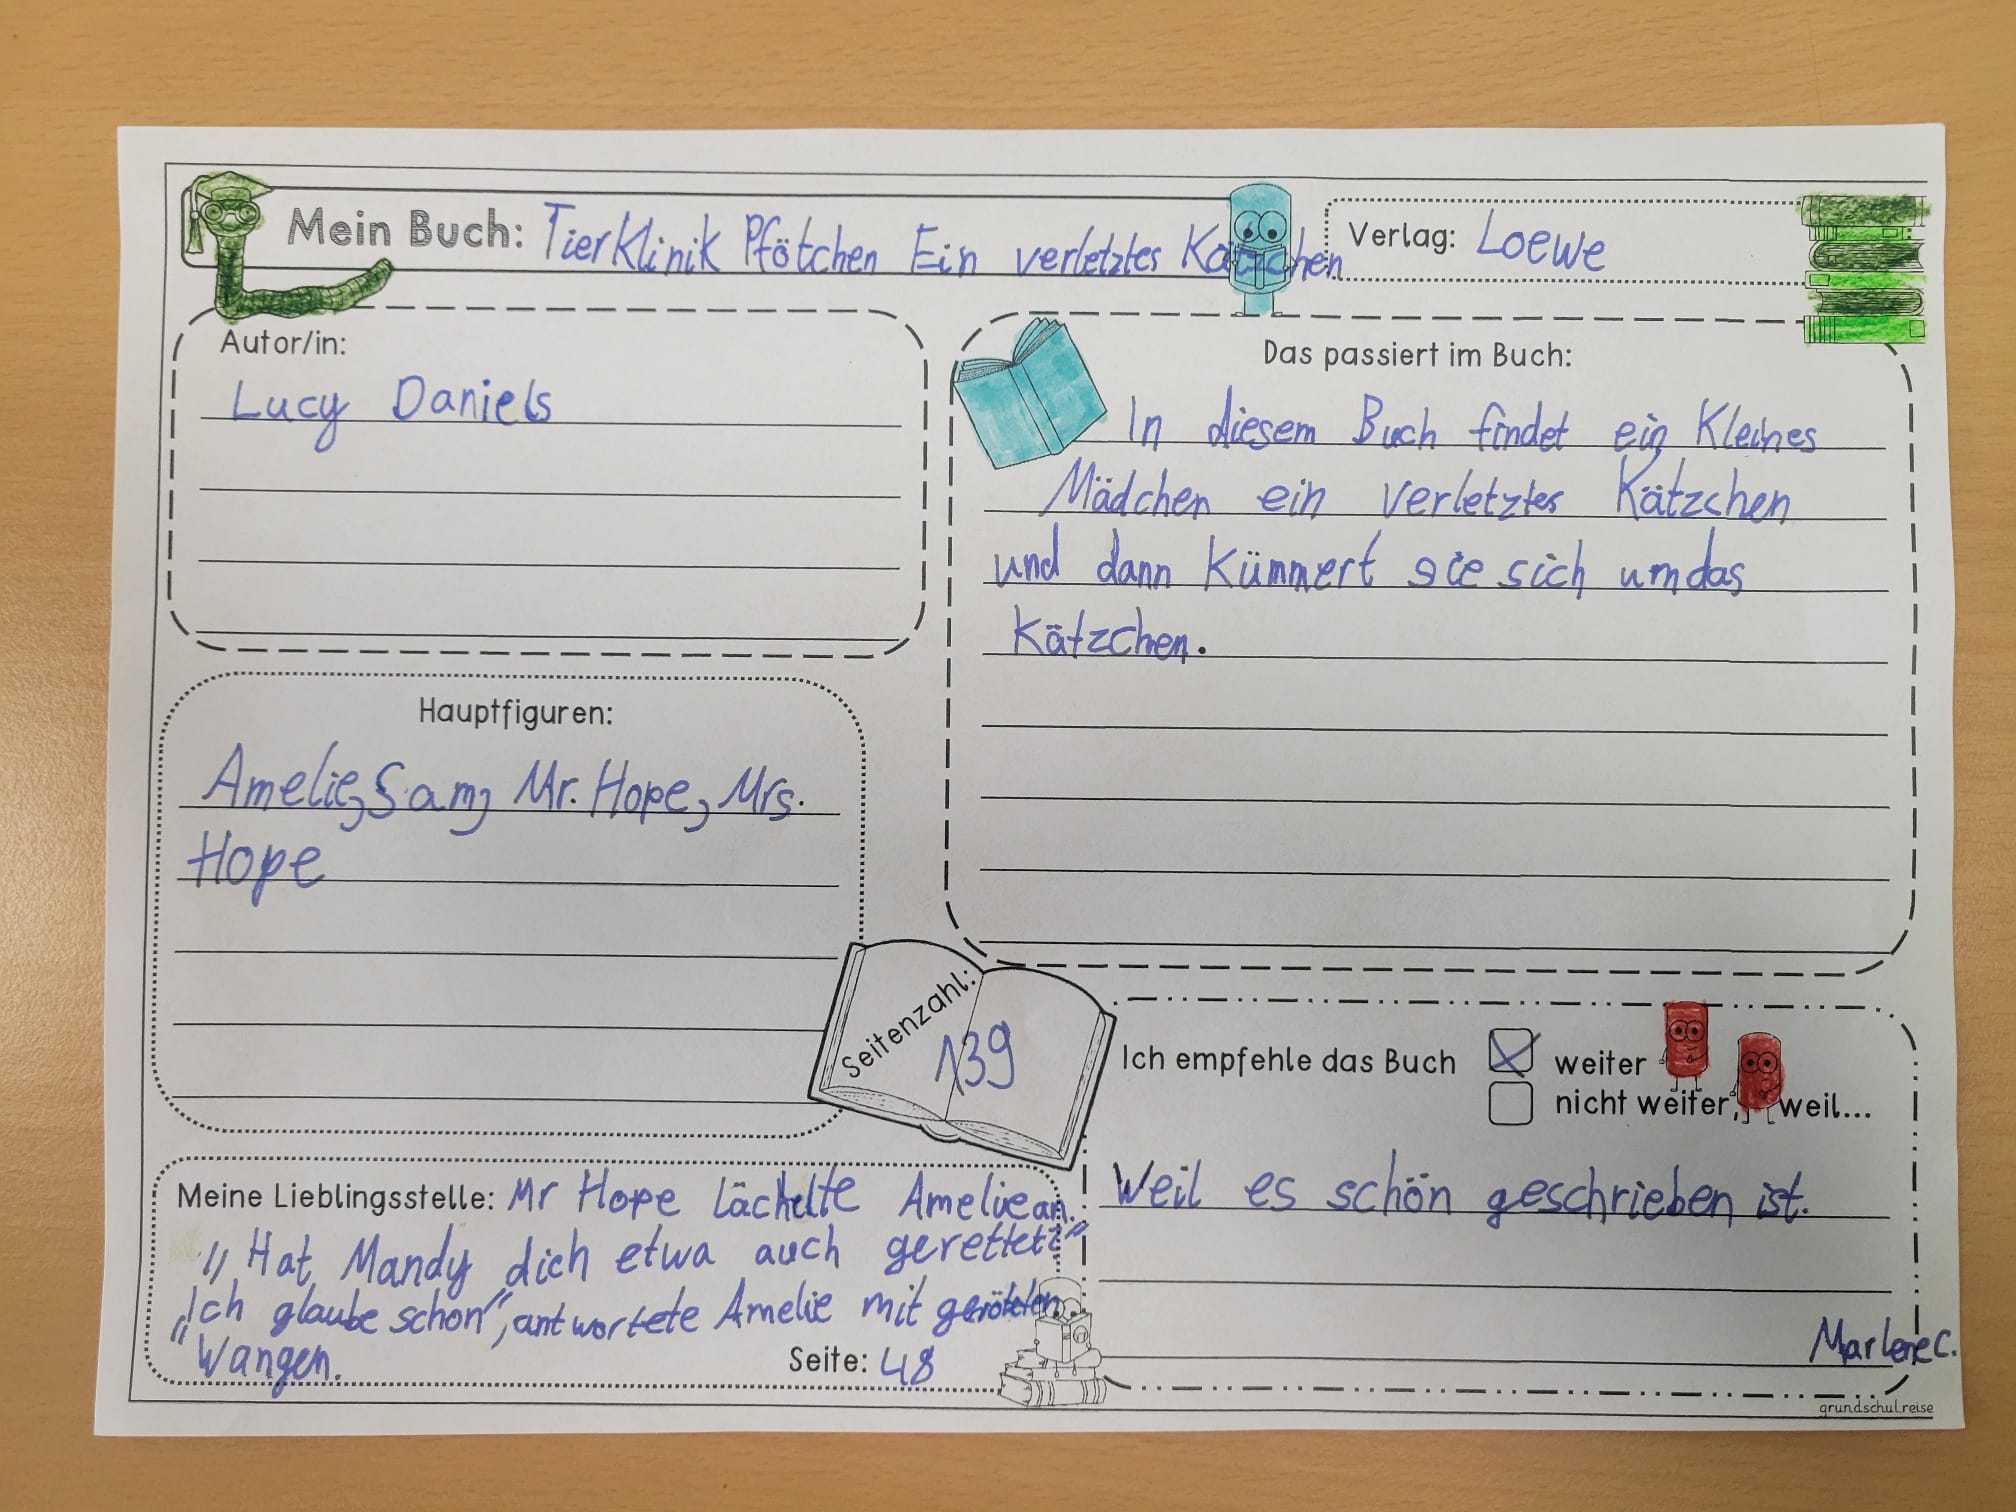 Mein Buch: TierKlinik Pfötchen Ein verletztes Kätzchen
Verlag: Loewe
Autor/in:
Lucy Daniels
Das passiert im Buch:
In diesem Buch findet ein Kleines
Mädchen ein verletztes Kätzchen
und dann Kümmert sie sich um das
Kätzchen.
Hauptfiguren:
Amelie, Sam, Mr. Hope, Mrs.
Hope
Seitenzahl:
139
Ich empfehle das Buch
weiter
nicht weiter, weil...
Weil es schön geschrieben ist.
Marlene C.
Meine Lieblingsstelle: Mr Hope Lächelte Amelie an.
„Hat Mandy dich etwa auch gerettet?"
„Ich glaube schon", antwortete Amelie mit geröteten
Wangen.
Seite: 48
grundschul.reise